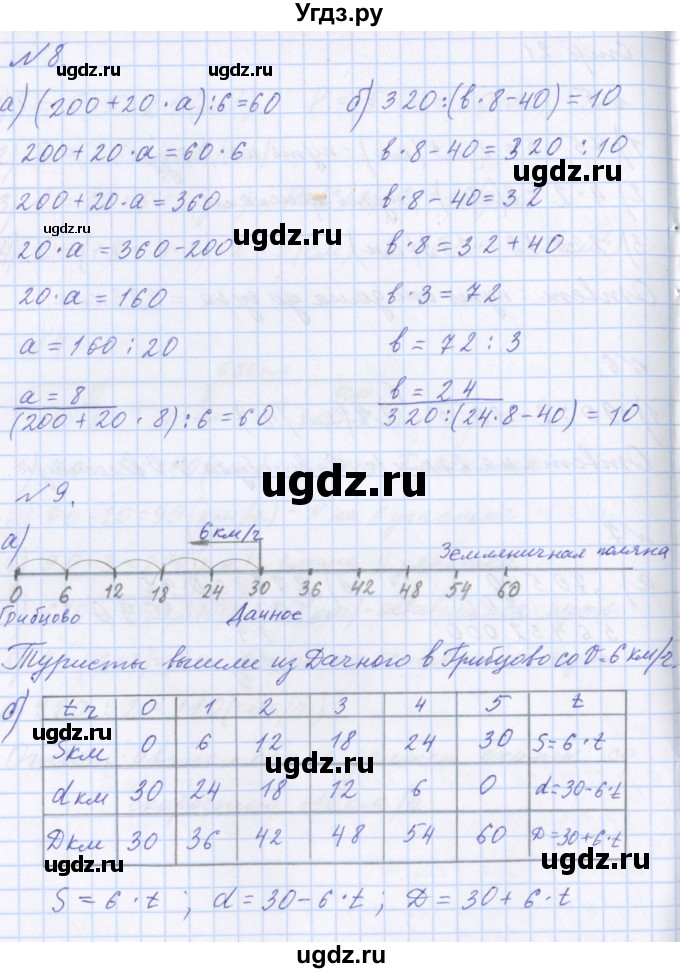 Угдз.ру
N 8
а) (200 + 20 · a) : 6 = 60
б) 320 : (в · 8 - 40) = 10
200 + 20 · a = 60 · 6
в · 8 - 40 = 320 : 10
200 + 20 · a = 360
в · 8 - 40 = 32
20 · a = 360 - 200
в · 8 = 32 + 40
20 · a = 160
в · 3 = 72
a = 160 : 20
в = 72 : 3
a = 8
в = 24
(200 + 20 · 8) : 6 = 60
320 : (24 · 8 - 40) = 10
N 9.
а)
6 км/ч
Земляничная поляна
0 6 12 18 24 30 36 42 48 54 60
Грибцово
Дачное
Туристы вышли из Дачного в Грибцово со V = 6 км/ч.
б)
t ч 0 1 2 3 4 5 t
S км 0 6 12 18 24 30 S = 6 · t
d км 30 24 18 12 6 0 d = 30 - 6 · t
D км 30 36 42 48 54 60 D = 30 + 6 · t
S = 6 · t ; d = 30 - 6 · t ; D = 30 + 6 · t
ugdz.ru
ugdz.ru
ugdz.ru
ugdz.ru
ugdz.ru
ugdz.ru
ugdz.ru
ugdz.ru
ugdz.ru
ugdz.ru
ugdz.ru
ugdz.ru
ugdz.ru
ugdz.ru